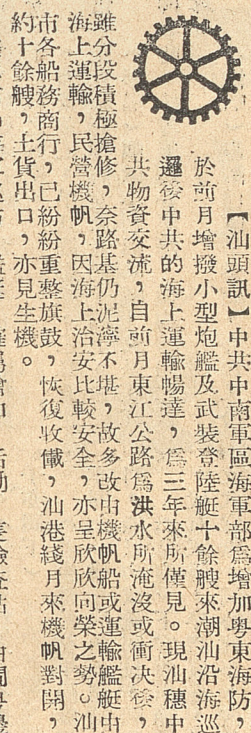 【汕頭訊】中共中南軍區海軍部爲增加粵東海防，
於前月增撥小型炮艦及武裝登陸艇十餘艘來潮汕沿海巡
邏後中共的海上運輸暢達，爲三年來所僅見。現汕穗中
共物資交流，自前月東江公路爲洪水所淹沒或衝決後，
雖分段積極搶修，奈路基仍泥濘不堪，故多改由機帆船或運輸艦艇由
海上運輸，民營機帆，因海上治安比較安全，亦呈欣欣向榮之勢。汕
市各船務商行，已紛紛重整旗鼓，恢復收儎，汕港綫月來機帆對開，
約十餘艘，土貨出口，亦見生機。